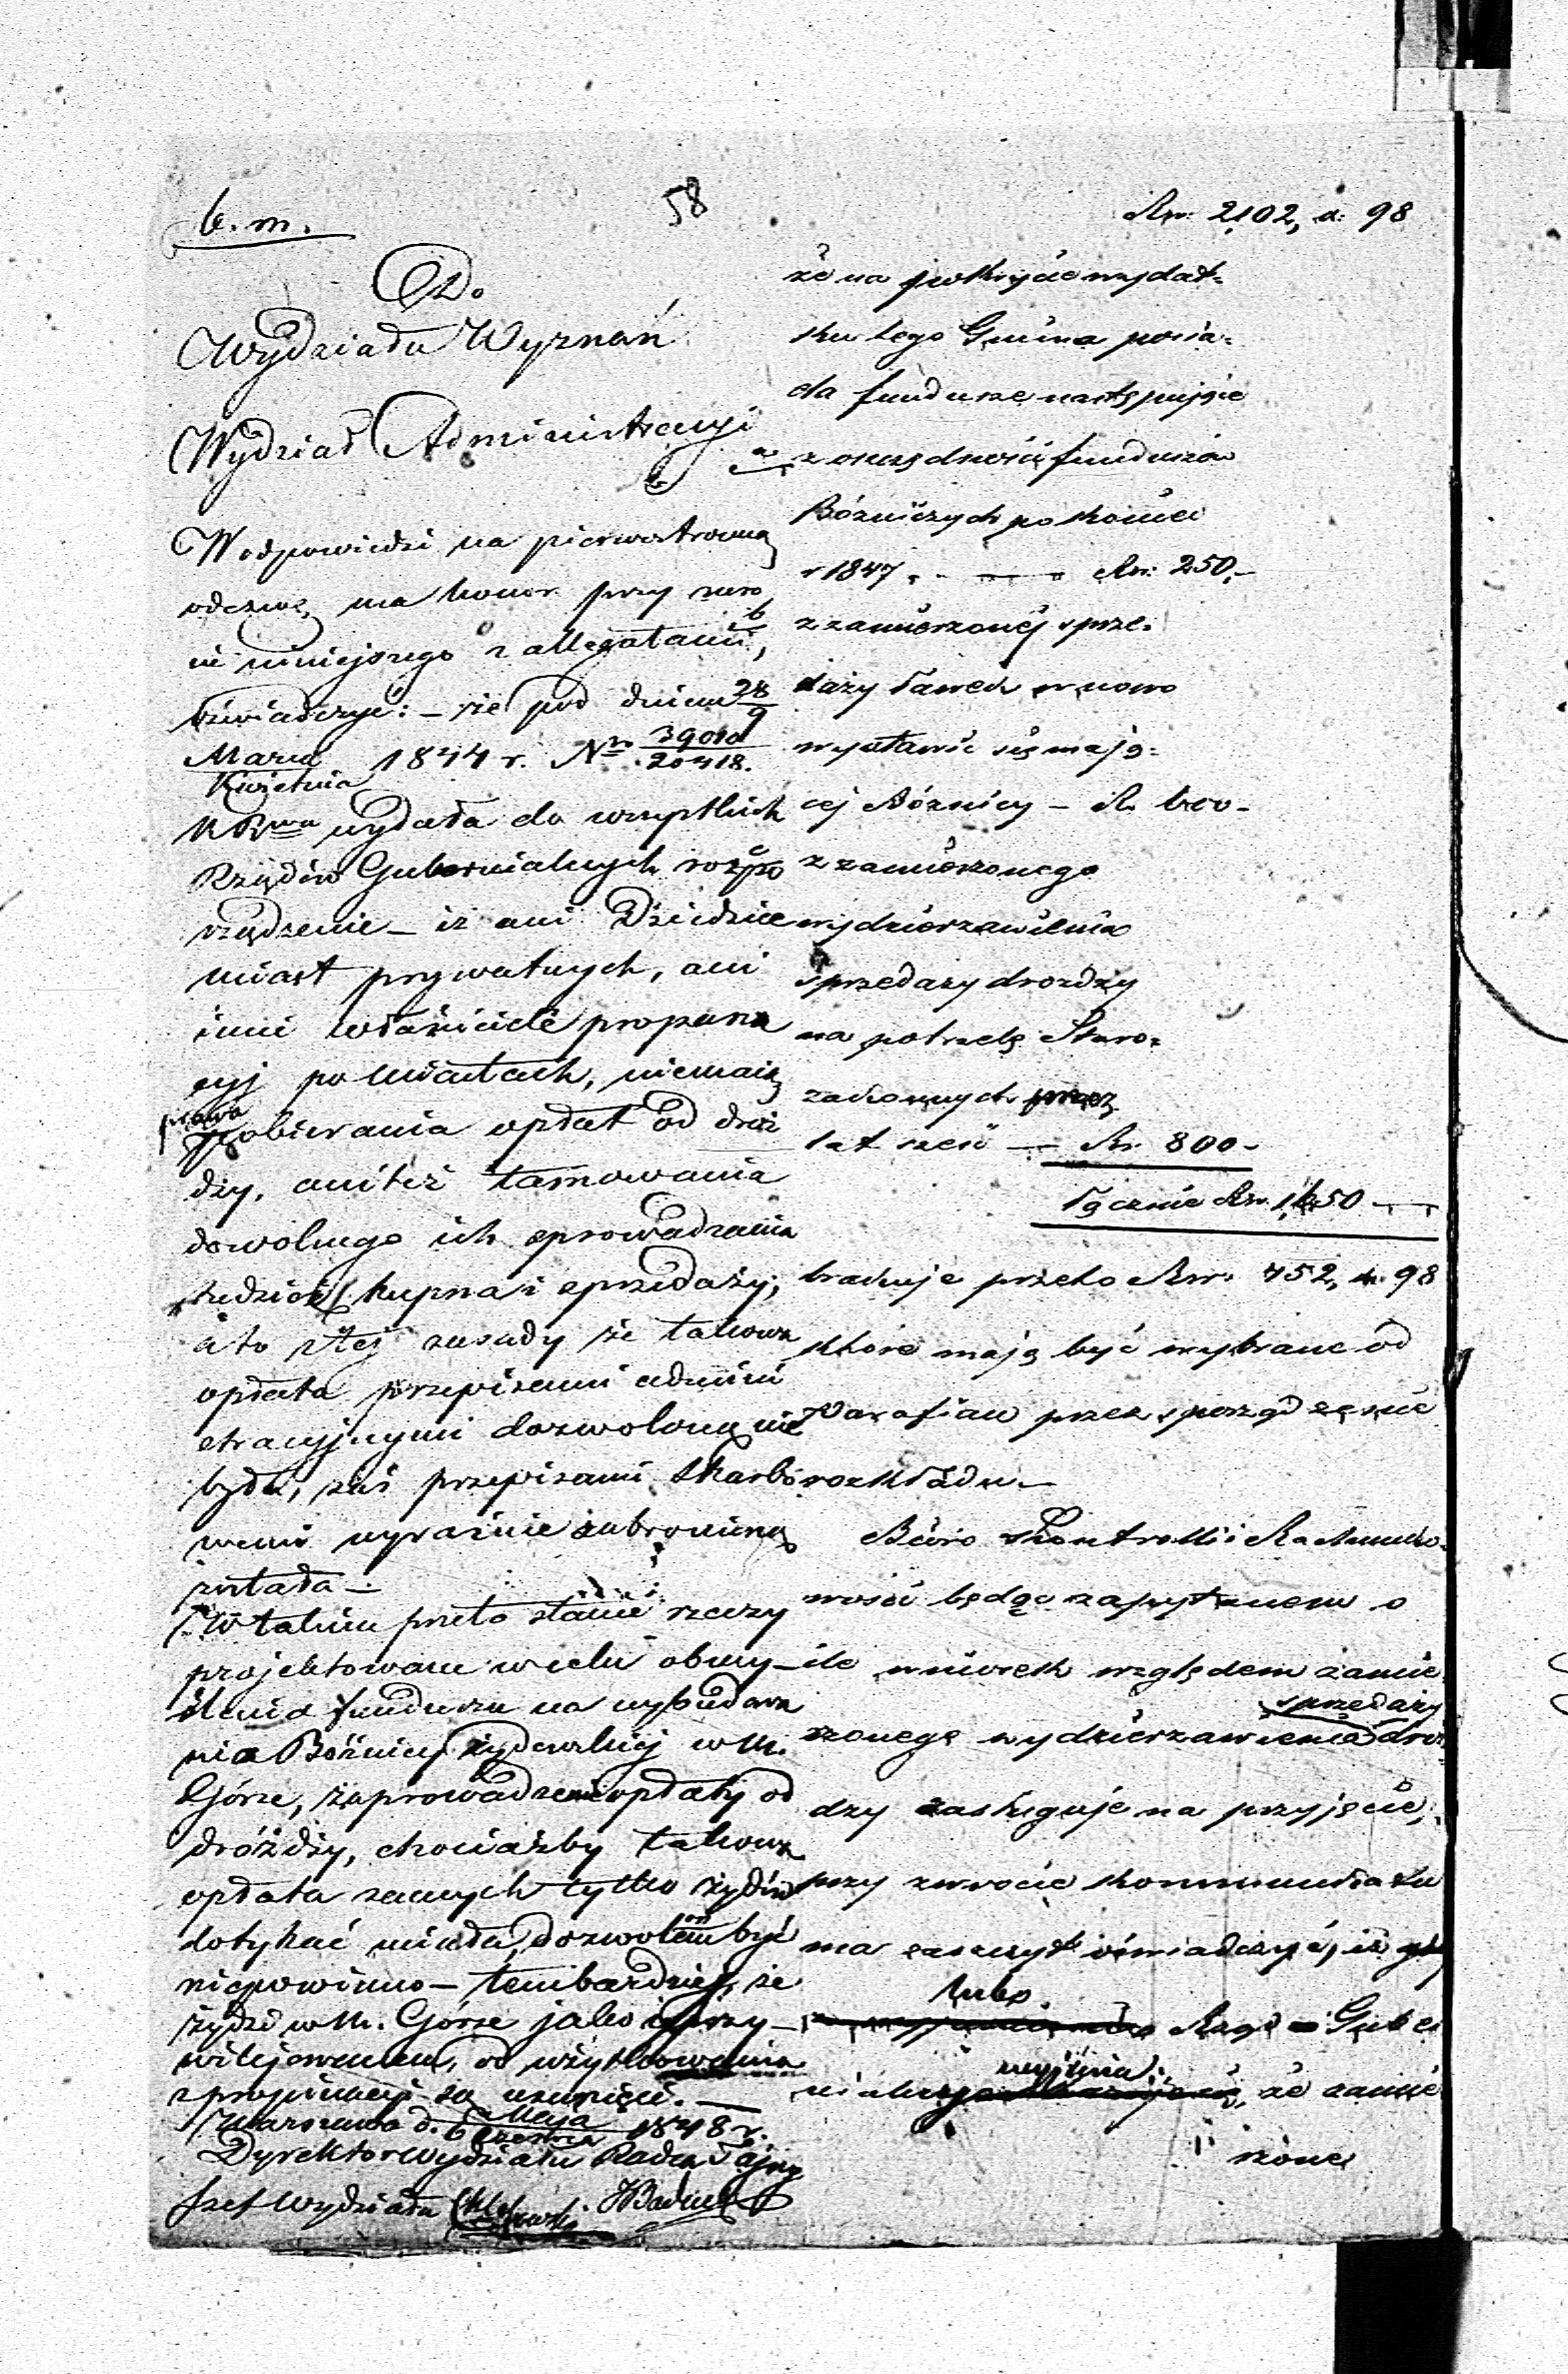 58
b. m.
Do
Wydziału Wyznań
Wydział Administracyi
W odpowiedzi na pierwostronną
odezwę, ma honor przy zwro
cie niniejszego z allegatami,
oświadczyć: – że pod dniem 28/9
Marca/Kwietnia 1844 r. Nro 39010/20418.
KRwa wydała do wszystkich
Rządów Gubernialnych rozpo
rządzenie – iż ani Dziedzice
miast prywatnych, ani
inni właściciele propina
cyj po miastach, niemają
prawa pobierania opłat od droż
dży, anitéż tamowania
dowolnego ich sprowadzania
tudzież kupna i sprzedaży;
a to z tej zasady że takowa
opłata przepisami admini
stracyjnymi dozwoloną nie
była, zaś przepisami Skarbo
wemi wyraźnie zabronioną
została –
W takim przeto stanie rzeczy
projektowane w celu obmy–
ślenia funduszu na wybudowa
nie Bóżnicy żydowskiej w M.
Górze, zaprowadzenie opłaty od
dróżdży, chociażby takowa
opłata samych tylko żydów
dotykać miała, dozwolonem być
niepowinno – tembardziej, że
żydzi w M. Górze jako uprzy–
wilejowanem, od użytkowania
z propinacyi są usunięci. –
Warszawa d. 6 Maja/Czerwca 1848 r.
Dyrektor Wydziału Radca Tajny
Szef Wydziału
Rsr: 2,102, k: 98
że na pokrycie wydat-
ku tego Gmina posia-
da fundusze następujące
a z oszczędności funduszów
Bóżniczych po końiec
r 1847 . – Rsr: 250.–
b z zamierzonéj sprze-
daży ławek w nowo
wystawić się mają-
céj Bóżnicy – Rs 600–
c z zamierzonego
wydzierżawienia
sprzedaży drożdży
na potrzebę Staro-
zakonnych przez
lat sześć – Rs. 800–
Łącznie Rsr. 1,650 –
brakuje przeto Rsr. 452, k. 98
które mają być wybrane od
Parafian przez sporządzenie
rozkładu –
Biuro Kontrolli i Rachunko-
wości będąc zapytanem o
ile wniosek względem zamie
rzonego wydzierżawienia sprzedaży droż
dży zasługuje na przyjęcie,
przy zwrocie kommunikatu
ma zaszczyt oświadczyć, iż gdy
Rząd Guber
nialny wyjaśnia, że zamie
rzone